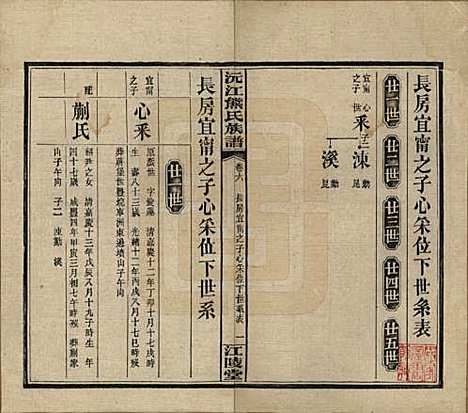 長房宜甯之子心采位下世系表
廿一世 廿二世 廿三世 廿四世 廿五世
宜甯之子
心采
子二
涷
勳
溪
勳
沅江熊氏族譜
卷六
長房宜甯之子心采位下世系表
一
江陵堂
長房宜甯之子心采位下世系
廿一世
宜甯之子
心采
原派世
清嘉慶十二年丁卯十月十七戌時
生壽八十三歲
光緒十二年丙戌八月十七巳時
洲東邊墳山子午向
配
蒯氏
之女
清嘉慶十三年戊辰八月十九子時生
四十七歲
咸豐四年甲寅三月初七午時歿
葬蒯家
山子午向
子二
涷勳
溪